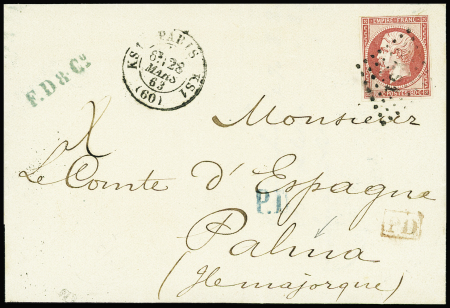 F.D & Cº
PARIS
KS1 KS1
6E 28
MARS
63
(60)
EMPIRE FRANC
POSTES 80 C
Monsieur
Le Comte d'Espagne
P.D.
Palma
PD
(Ile majorque)